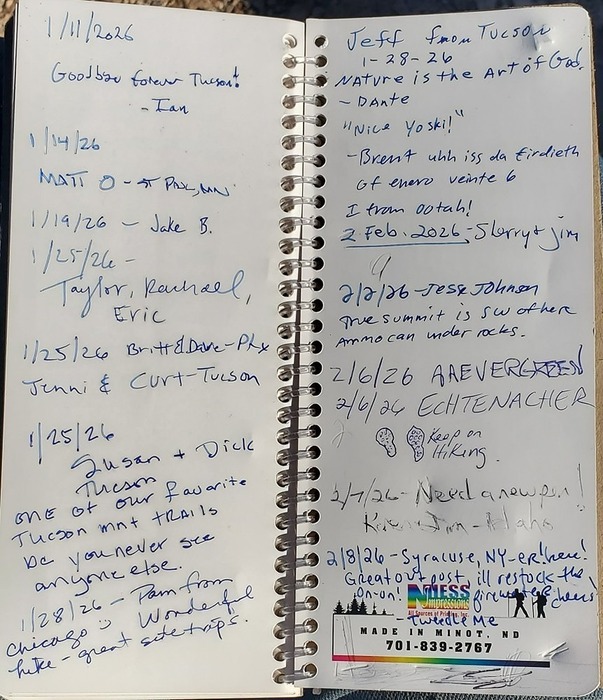 1/11/2026
Goodbye forever Tucson!
- Ian
1/14/26
MATT O - ST PAUL, MN
1/19/26 - Jake B.
1/25/26 -
Taylor, Rachael,
Eric
1/25/26 Britt & Dave - Phx
Jenni & Curt - Tucson
1/25/26
Susan + Dick
Tucson
one of our favorite
Tucson mnt trails
be you never see
anyone else.
1/28/26 - Pam from
Chicago Wonderful
hike - great
Jeff from Tucson
1-28-26
Nature is the Art of God.
- Dante
"Nice Yoski!"
- Brent uhh iss da tirdieth
of enero veinte 6
I from ootah!
2 Feb. 2026 - Sherry & Jim
2/2/26 - Jese Johnson
True summit is SW of here
Ammo can under rocks.
2/6/26 AAEVERGREEN
2/6/26 ECHTENACHER
Keep on
Hiking
2/7/26 - Need a new pen!
Jim - Idaho
2/8/26 - Syracuse, NY-er! here!
Great outpost, ill restock the
on-on! cheers!
- Tweedle Me
NESS
Impressions
All Sources of Printing, Inc.
MADE IN MINOT, ND
701-839-2767